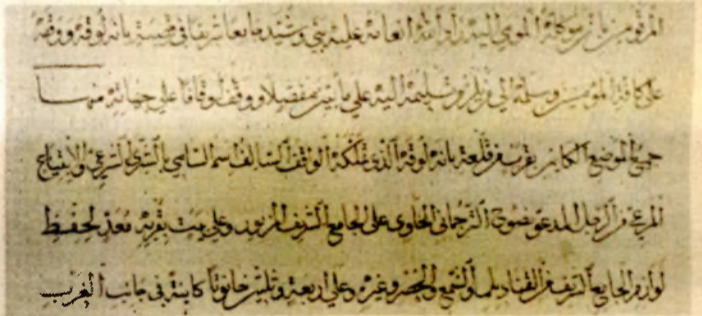 المرقومين باقرسوكمة الموي اليه زاد الله انعامه عليه بنى وشيد جامعا شريفا في قصبة بانه لوقه ووقفه
على كافة المؤمنين وسلمه الى وتسليمه اليه على ما بين تفصيلا ووقف اوقافا على جهاته منها
جميع الموضع الكاين بقرب قلعة بانه لوقه الذى تملكه الواقف السالف اسمه السامي بالشرى الشرعي والابتياع
المرعي من الرجل المدعو بنصوح الترجمانى الحاوى على الجامع الشريف المزبور وعلى بيت بقربه معد لحفظ
لوازم الجامع الشريف من القناديل والشمع والحصر وغيره وعلى اربعة وثلثين حانوتا كاينة في جانب الغربى